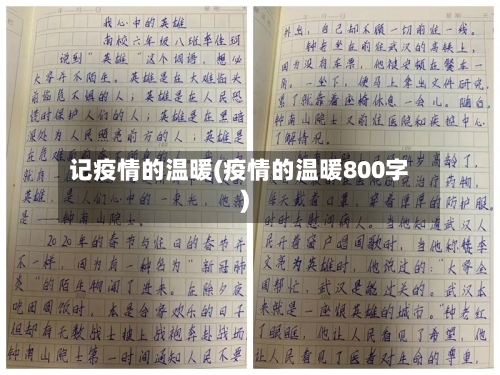 我心中的英雄
南校六年级八班李佳珂
说到"英雄"这个词语,想必
大家并不陌生。英雄是在大难临头
前临危不惧的人;英雄是在人民恐
慌时保护人们的人;英雄是在黑暗
深处为人民照亮前方的人;英雄是
在危难
就自一
英雄,是人们心中的一束光,他就
是——钟南山院士。
2020年的春节与往日的春节并
不一样,因为有一种名为"新冠肺
炎"的陌生物闯了进来。在除夕夜
吃团圆饭时,本是合家欢乐的日子
但却有无数战士披上战袍奔赴战场,
钟南山院士第一时间通知人民不要
外出,自己却不顾一切前往一线。
钟老坐在前往武汉的高铁上,
因为没有车票,他被安顿在餐车一
角。一坐下,便马上拿出文件研究,
累了就靠着座椅休息一会儿。随后,
钟南山院士又前往医院和疾控中心
了解情况。
岁高龄了,
治疗药物,
每天戴着口罩,穿着厚厚的防护服,
时时去慰问病人。当他知道武汉人
民开着窗户唱国歌时,当他称赞李
文亮为英雄时,他说过的:"大家全
国帮忙,武汉是能过关的。武汉本
来就是一座很英雄的城市。"钟老红
了眼眶,他让人民看见了希望,他
让人民看见了医者对生命的尊重,
记疫情的温暖(疫情的温暖800字
)